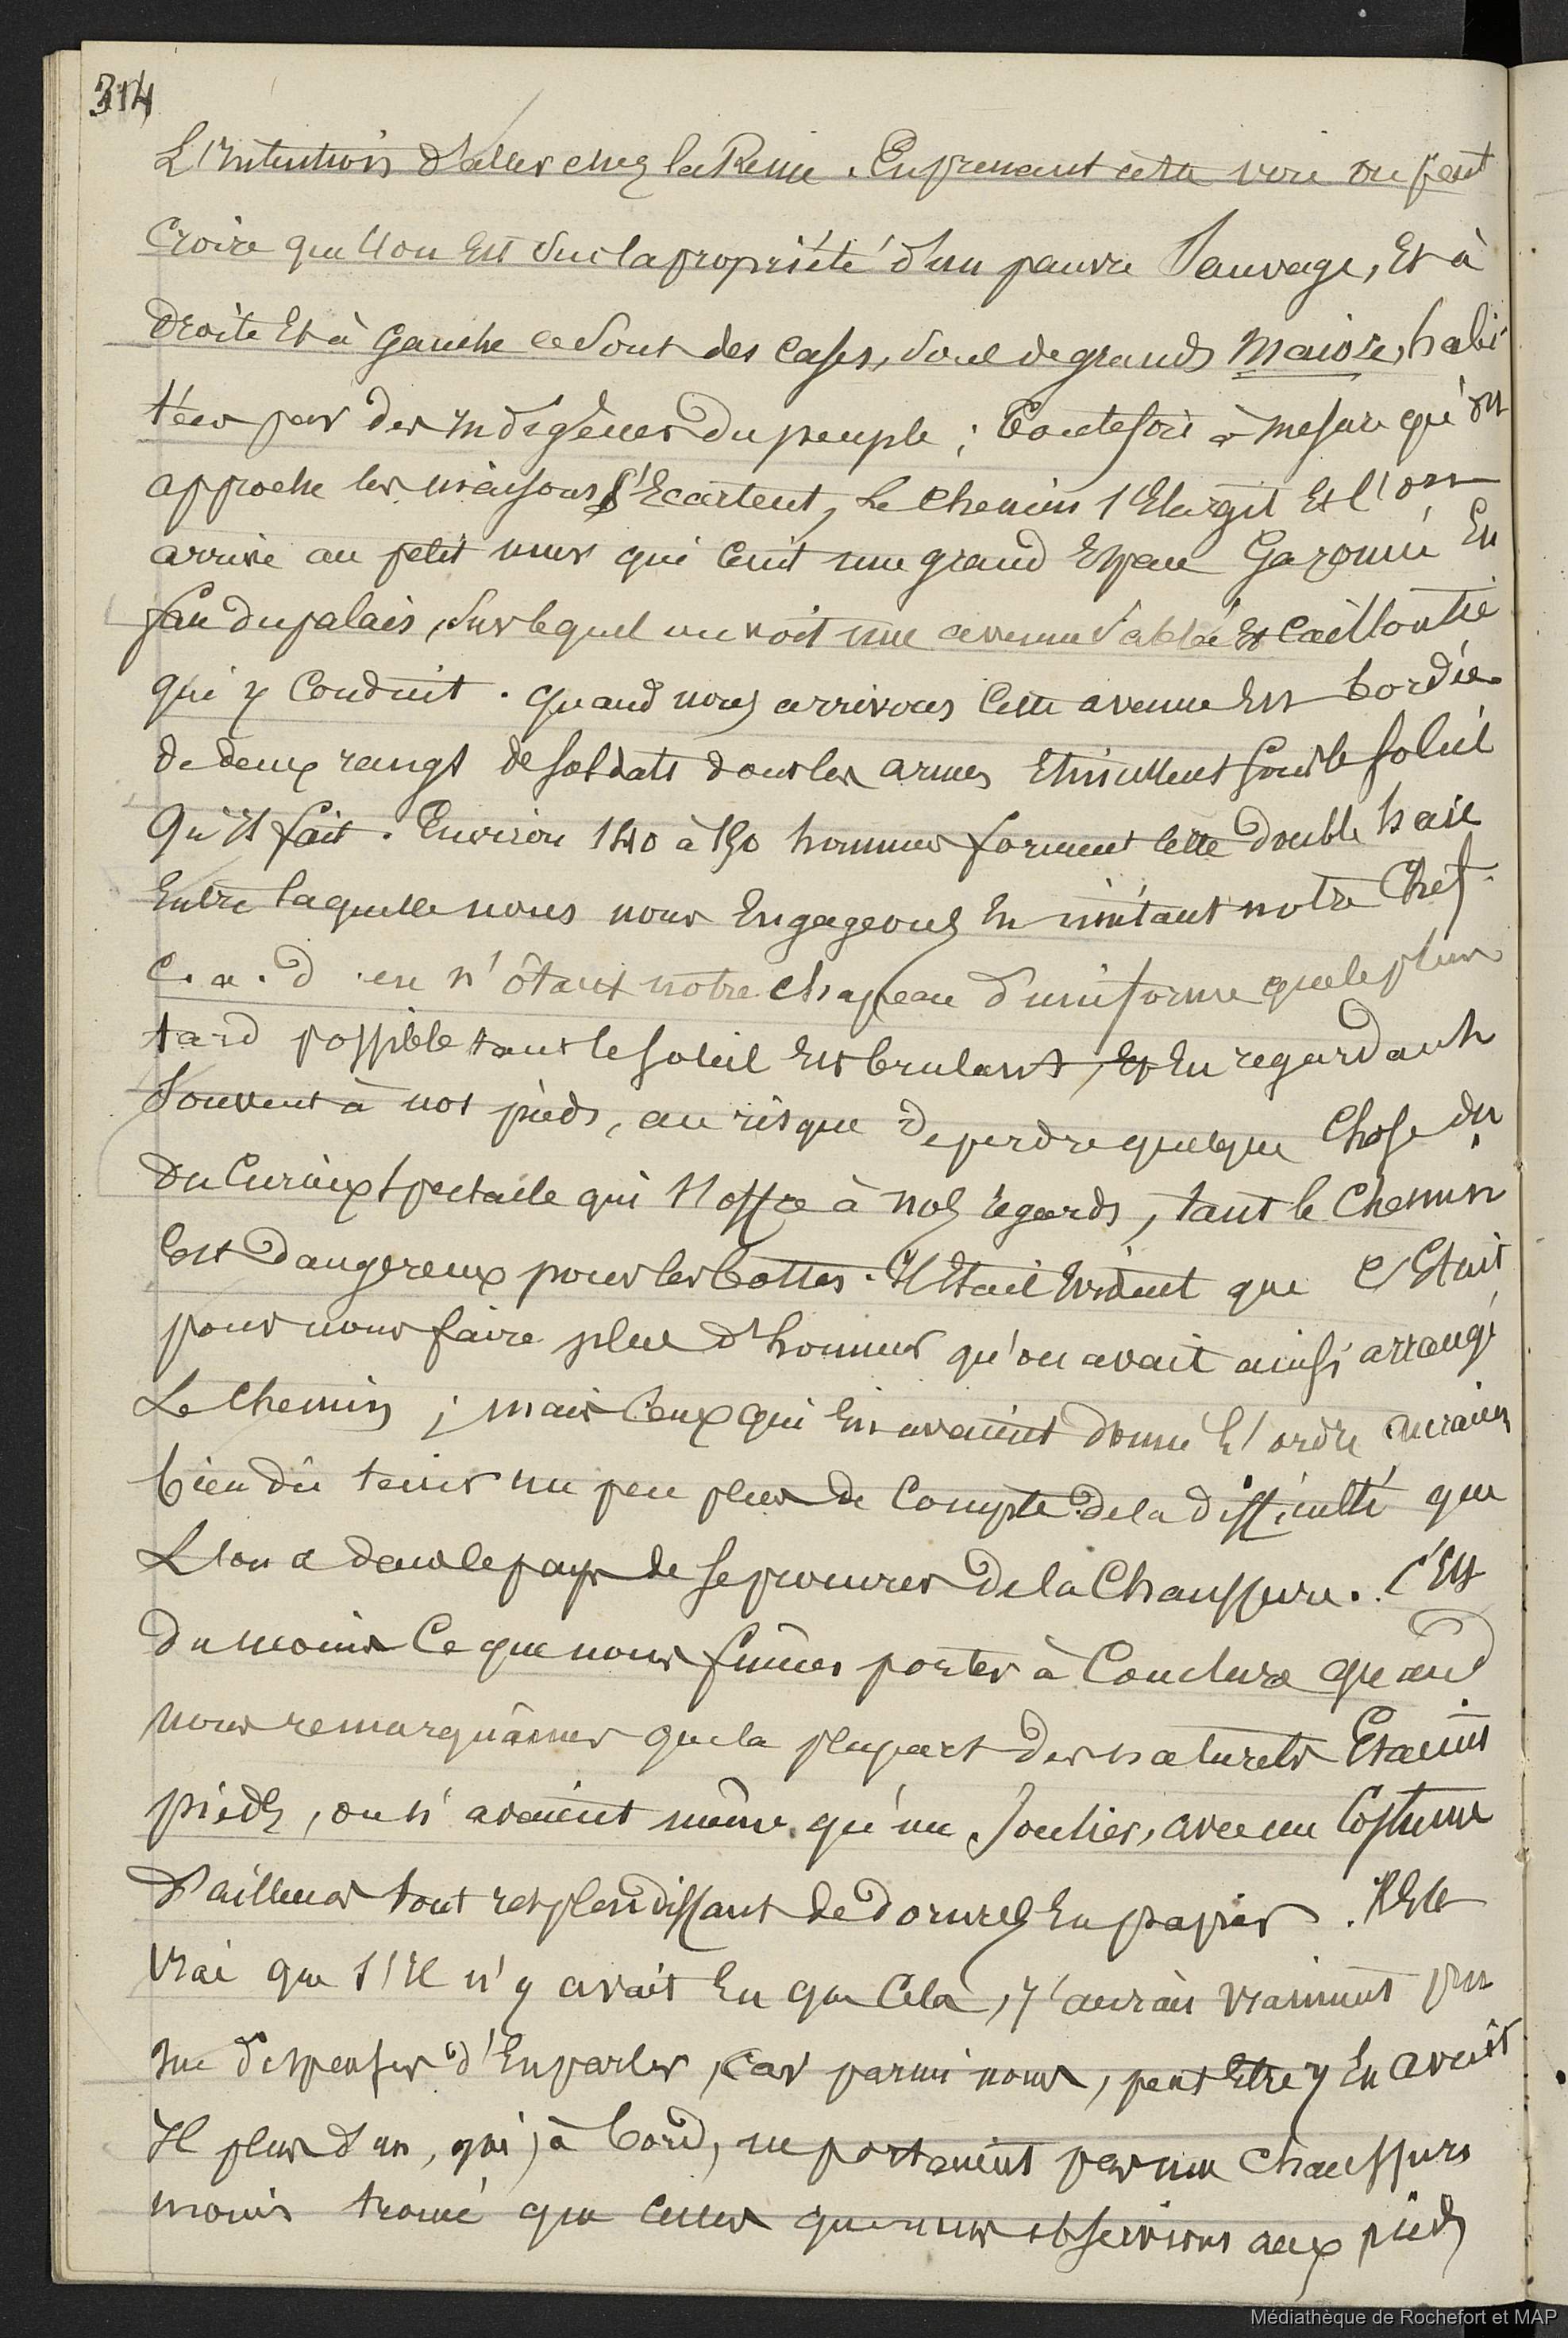 314
L'intention d'aller chez la Reine. En prenant cette voie on peut
croire que l'on est sur la propriété d'un pauvre sauvage, et à
droite et à gauche ce sont des cases, sous de grands maiore, habi-
tées par des indigènes du peuple ; toutefois à mesure qu'on
approche les maisons s'écartent, le chemin s'élargit et l'on
arrive au petit mur qui ceint un grand espace gazonné en
face du palais, sur lequel on voit une avenue sablée et cailloutée
qui y conduit. Quand nous arrivons cette avenue est bordée
de deux rangs de soldats dont les armes étincellent sous le soleil
qu'il fait. Environ 140 à 150 hommes forment cette double haie
entre laquelle nous nous engageons en imitant notre chef.
c. a. d en n'ôtant notre chapeau d'uniforme que le plus
tard possible tant le soleil est brulant, et en regardant
souvent à nos pieds, au risque de perdre quelque chose du
du curieux spectacle qui s'offre à nos regards, tant le chemin
est dangereux pour les bottes. Il était évident que c'était
pour nous faire plus d'honneur qu'on avait ainsi arrangé
le chemin ; mais ceux qui en avaient donné l'ordre auraient
bien dû tenir un peu plus de compte de la difficulté que
l'on a dans le pays de se procurer de la chaussure. C'est
du moins ce que nous fûmes portés à conclure quand
nous remarquâmes que la plupart des naturels étaient
pieds, ou n'avaient même qu'un soulier, avec un costume
d'ailleurs tout resplendissant de dorures en papier. Il est
vrai que s'il n'y avait eu que cela, j'aurais vraiment pu
me dispenser d'en parler, car parmi nous, peut être y en avait
il plus d'un, qui, à bord, ne portaient pas une chaussure
moins trouée que celles que nous observions aux pieds
Médiathèque de Rochefort et MAP